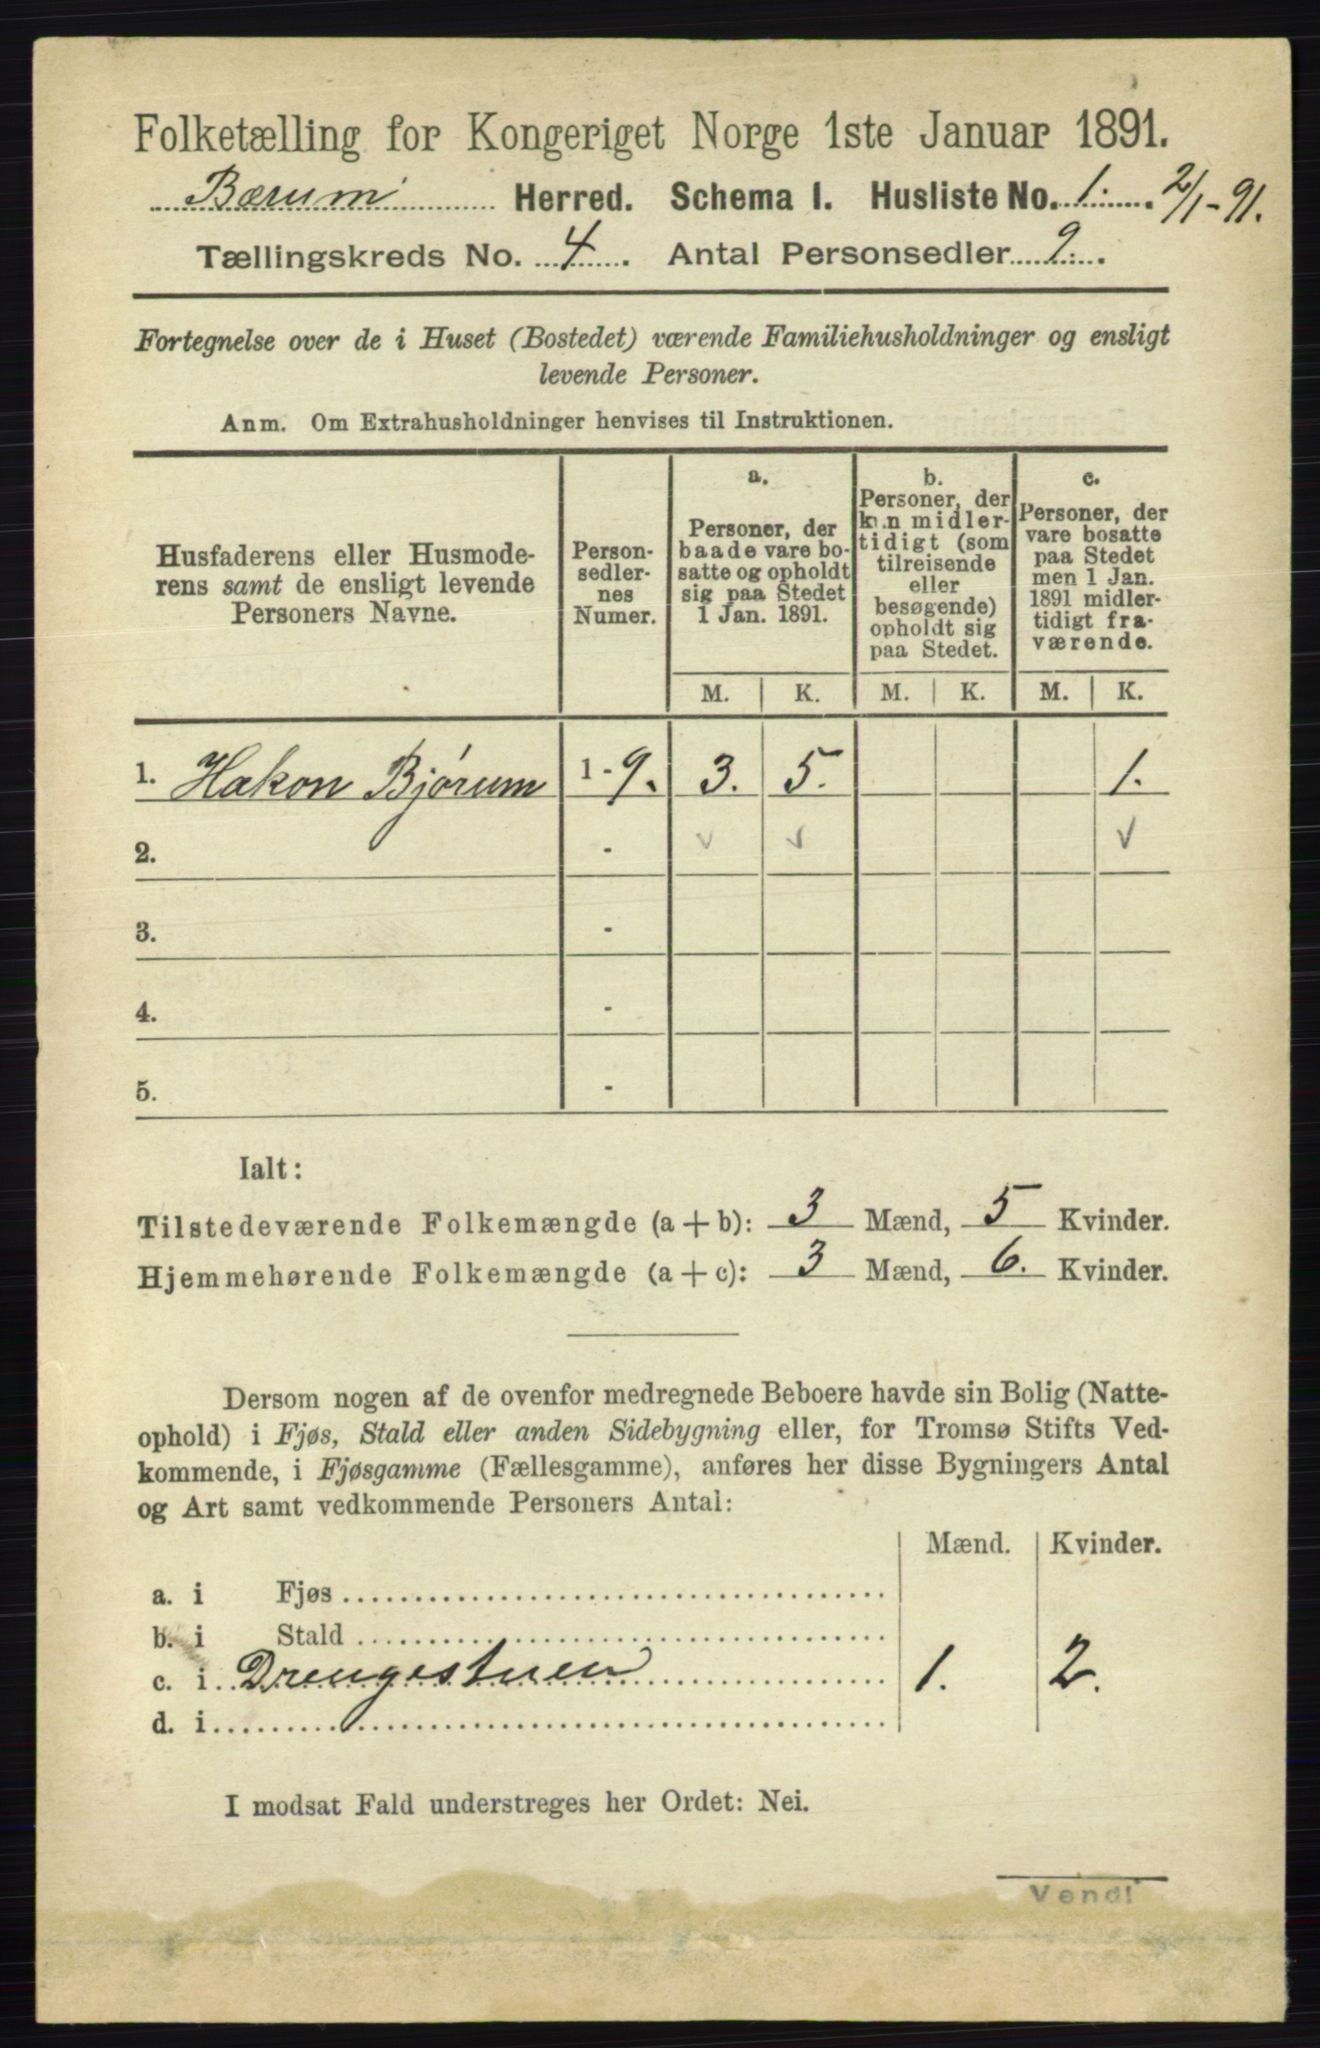 Folketælling for Kongeriget Norge 1ste Januar 1891.
Bærum Herred. Schema I. Husliste No. 1. 2/1-91.
Tællingskreds No. 4. Antal Personsedler 9.
Fortegnelse over de i Huset (Bostedet) værende Familiehusholdninger og ensligt
levende Personer.
Anm. Om Extrahusholdninger henvises til Instruktionen.
Husfaderens eller Husmode-
rens samt de ensligt levende
Personers Navne.
Person-
sedler-
nes
Numer.
a.
Personer, der
baade vare bo-
satte og opholdt
sig paa Stedet
1 Jan. 1891.
b.
Personer, der
kun midler-
tidigt (som
tilreisende
eller
besøgende)
opholdt sig
paa Stedet.
c.
Personer, der
vare bosatte
paa Stedet
men 1 Jan.
1891 midler-
tidigt fra-
værende.
M. K. M. K. M. K.
1. Hakon Bjørum 1 - 9. 3. 5. 1.
2. - ✓ ✓ ✓
3. -
4. -
5. -
Ialt:
Tilstedeværende Folkemængde (a + b): 3 Mænd, 5 Kvinder.
Hjemmehørende Folkemængde (a + c): 3 Mænd, 6. Kvinder.
Dersom nogen af de ovenfor medregnede Beboere havde sin Bolig (Natte-
ophold) i Fjøs, Stald eller anden Sidebygning eller, for Tromsø Stifts Ved-
kommende, i Fjøsgamme (Fællesgamme), anføres her disse Bygningers Antal
og Art samt vedkommende Personers Antal:
Mænd. Kvinder.
a. i Fjøs
b. i Stald
c. i Drengestuen 1. 2.
d. i
I modsat Fald understreges her Ordet: Nei.
Vend!